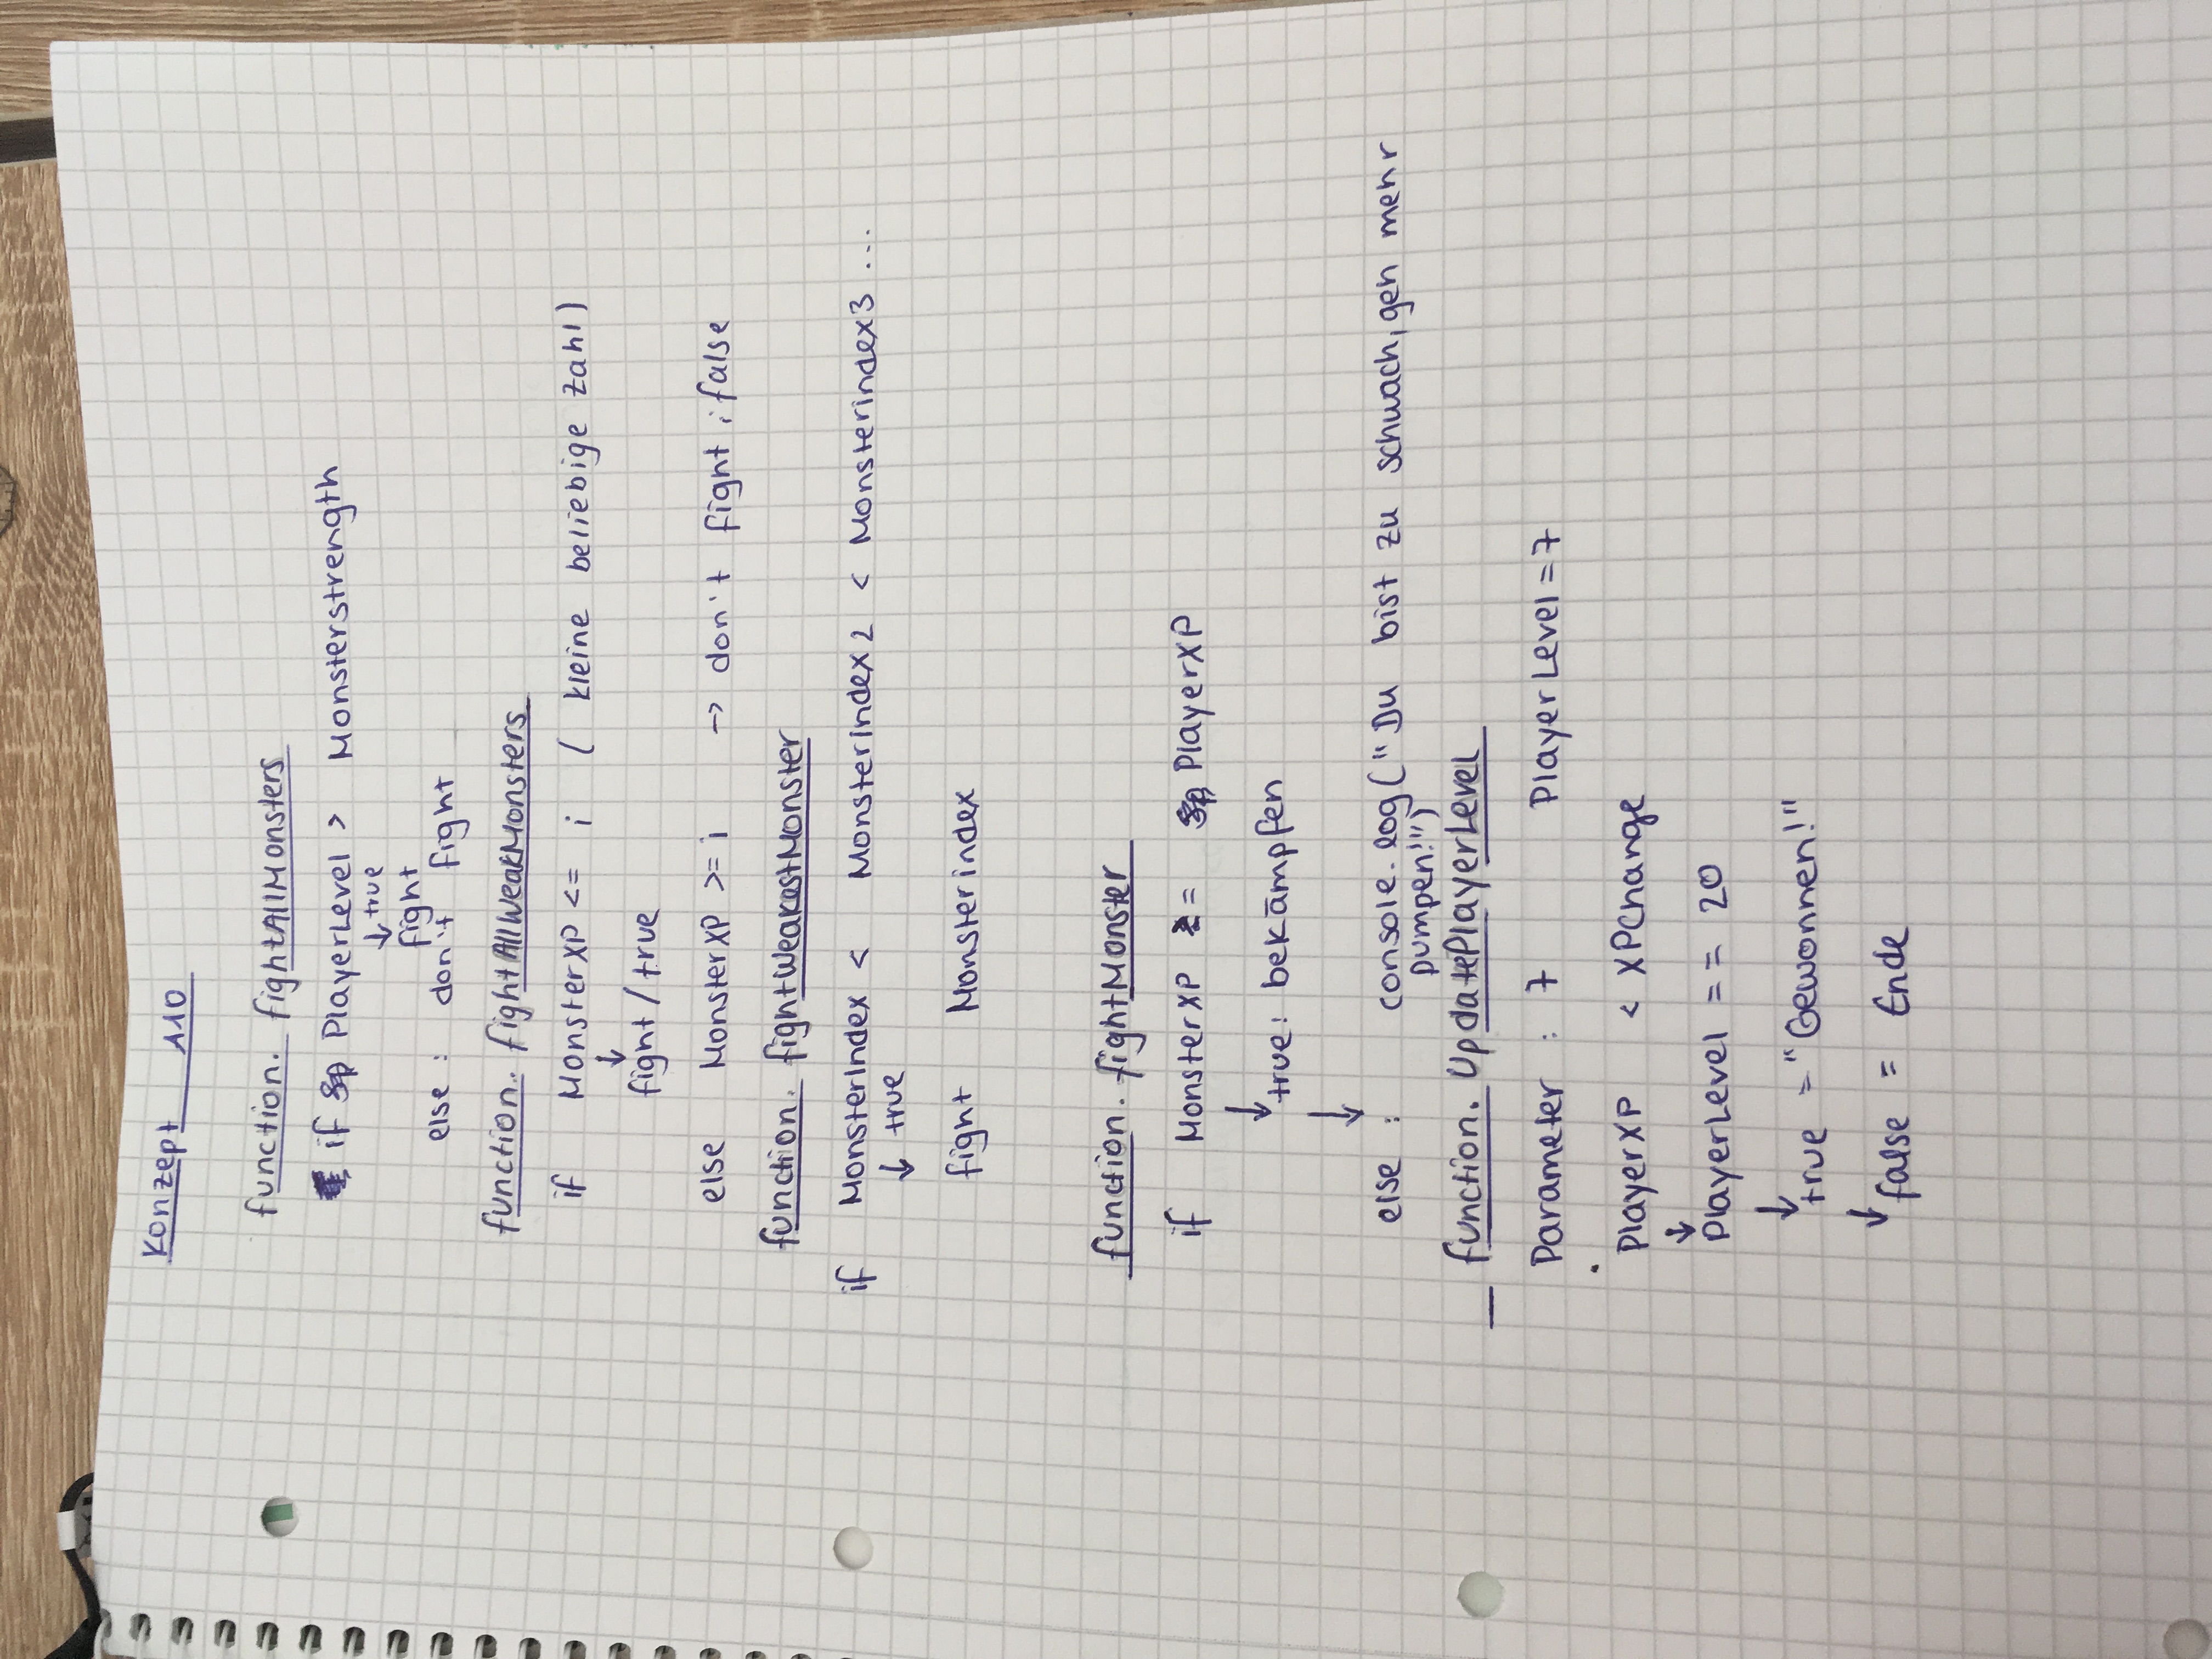 Konzept 110
function. fightAllMonsters
if PlayerLevel > Monsterstrength
↓ true
fight
else : don't fight
function. fightAllWeakMonsters
if MonsterXP <= i ( kleine beliebige Zahl )
↓
fight / true
else MonsterXP >= i → don't fight ; false
function. fightWeakestMonster
if MonsterIndex < Monsterindex2 < Monsterindex3 ...
↓ true
fight Monsterindex
function. fightMonster
if MonsterXP = PlayerXP
↓
true: bekämpfen
↓
else : console.log("Du bist zu schwach, geh mehr
pumpen!")
function. UpdatePlayerLevel
Parameter : 7 PlayerLevel = 7
PlayerXP < XPChange
↓
PlayerLevel == 20
↓
true = "Gewonnen!"
↓
false = Ende